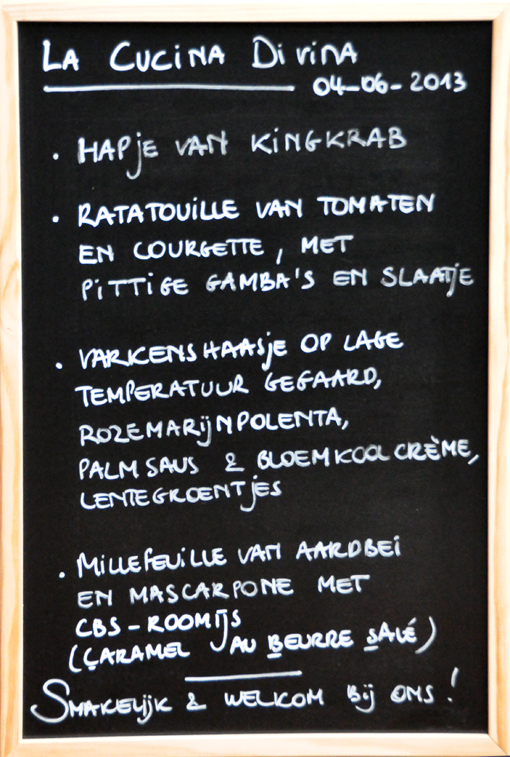 La Cucina Divina
04-06-2013
• Hapje van Kingkrab
• Ratatouille van tomaten
en courgette, met
pittige gamba's en slaatje
• Varkenshaasje op lage
temperatuur gegaard,
rozemarijnpolenta,
palmsaus & bloemkoolcrème,
lentegroentjes
• Millefeuille van aardbei
en mascarpone met
CBS-roomijs
(Caramel au Beurre Salé)
Smakelijk & welkom bij ons!